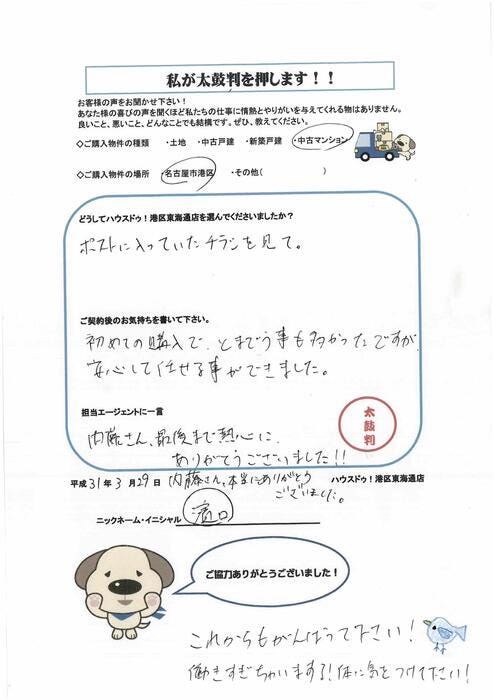 私が太鼓判を押します！！
お客様の声をお聞かせ下さい！
あなた様の喜びの声を聞くほど私たちの仕事に情熱とやりがいを与えてくれる物はありません。
良いこと、悪いこと、どんなことでも結構です。ぜひ、教えてください。
◇ご購入物件の種類　・土地　・中古戸建　・新築戸建　・中古マンション
◇ご購入物件の場所　・名古屋市港区　・その他(　　　)
どうしてハウスドゥ！港区東海通店を選んでくださいましたか？
ポストに入っていたチラシを見て。
ご契約後のお気持ちを書いて下さい。
初めての購入で、とまどう事も多かったですが
安心して任せる事ができました。
担当エージェントに一言
内藤さん、最後まで熱心に
ありがとうございました!!
太鼓判
平成31年3月29日　内藤さん、本当にありがとう　ハウスドゥ！港区東海通店
ございました。
ニックネーム・イニシャル　濱口
ご協力ありがとうございました！
これからもがんばって下さい！
働きすぎちゃいますする！体に気をつけて下さい！